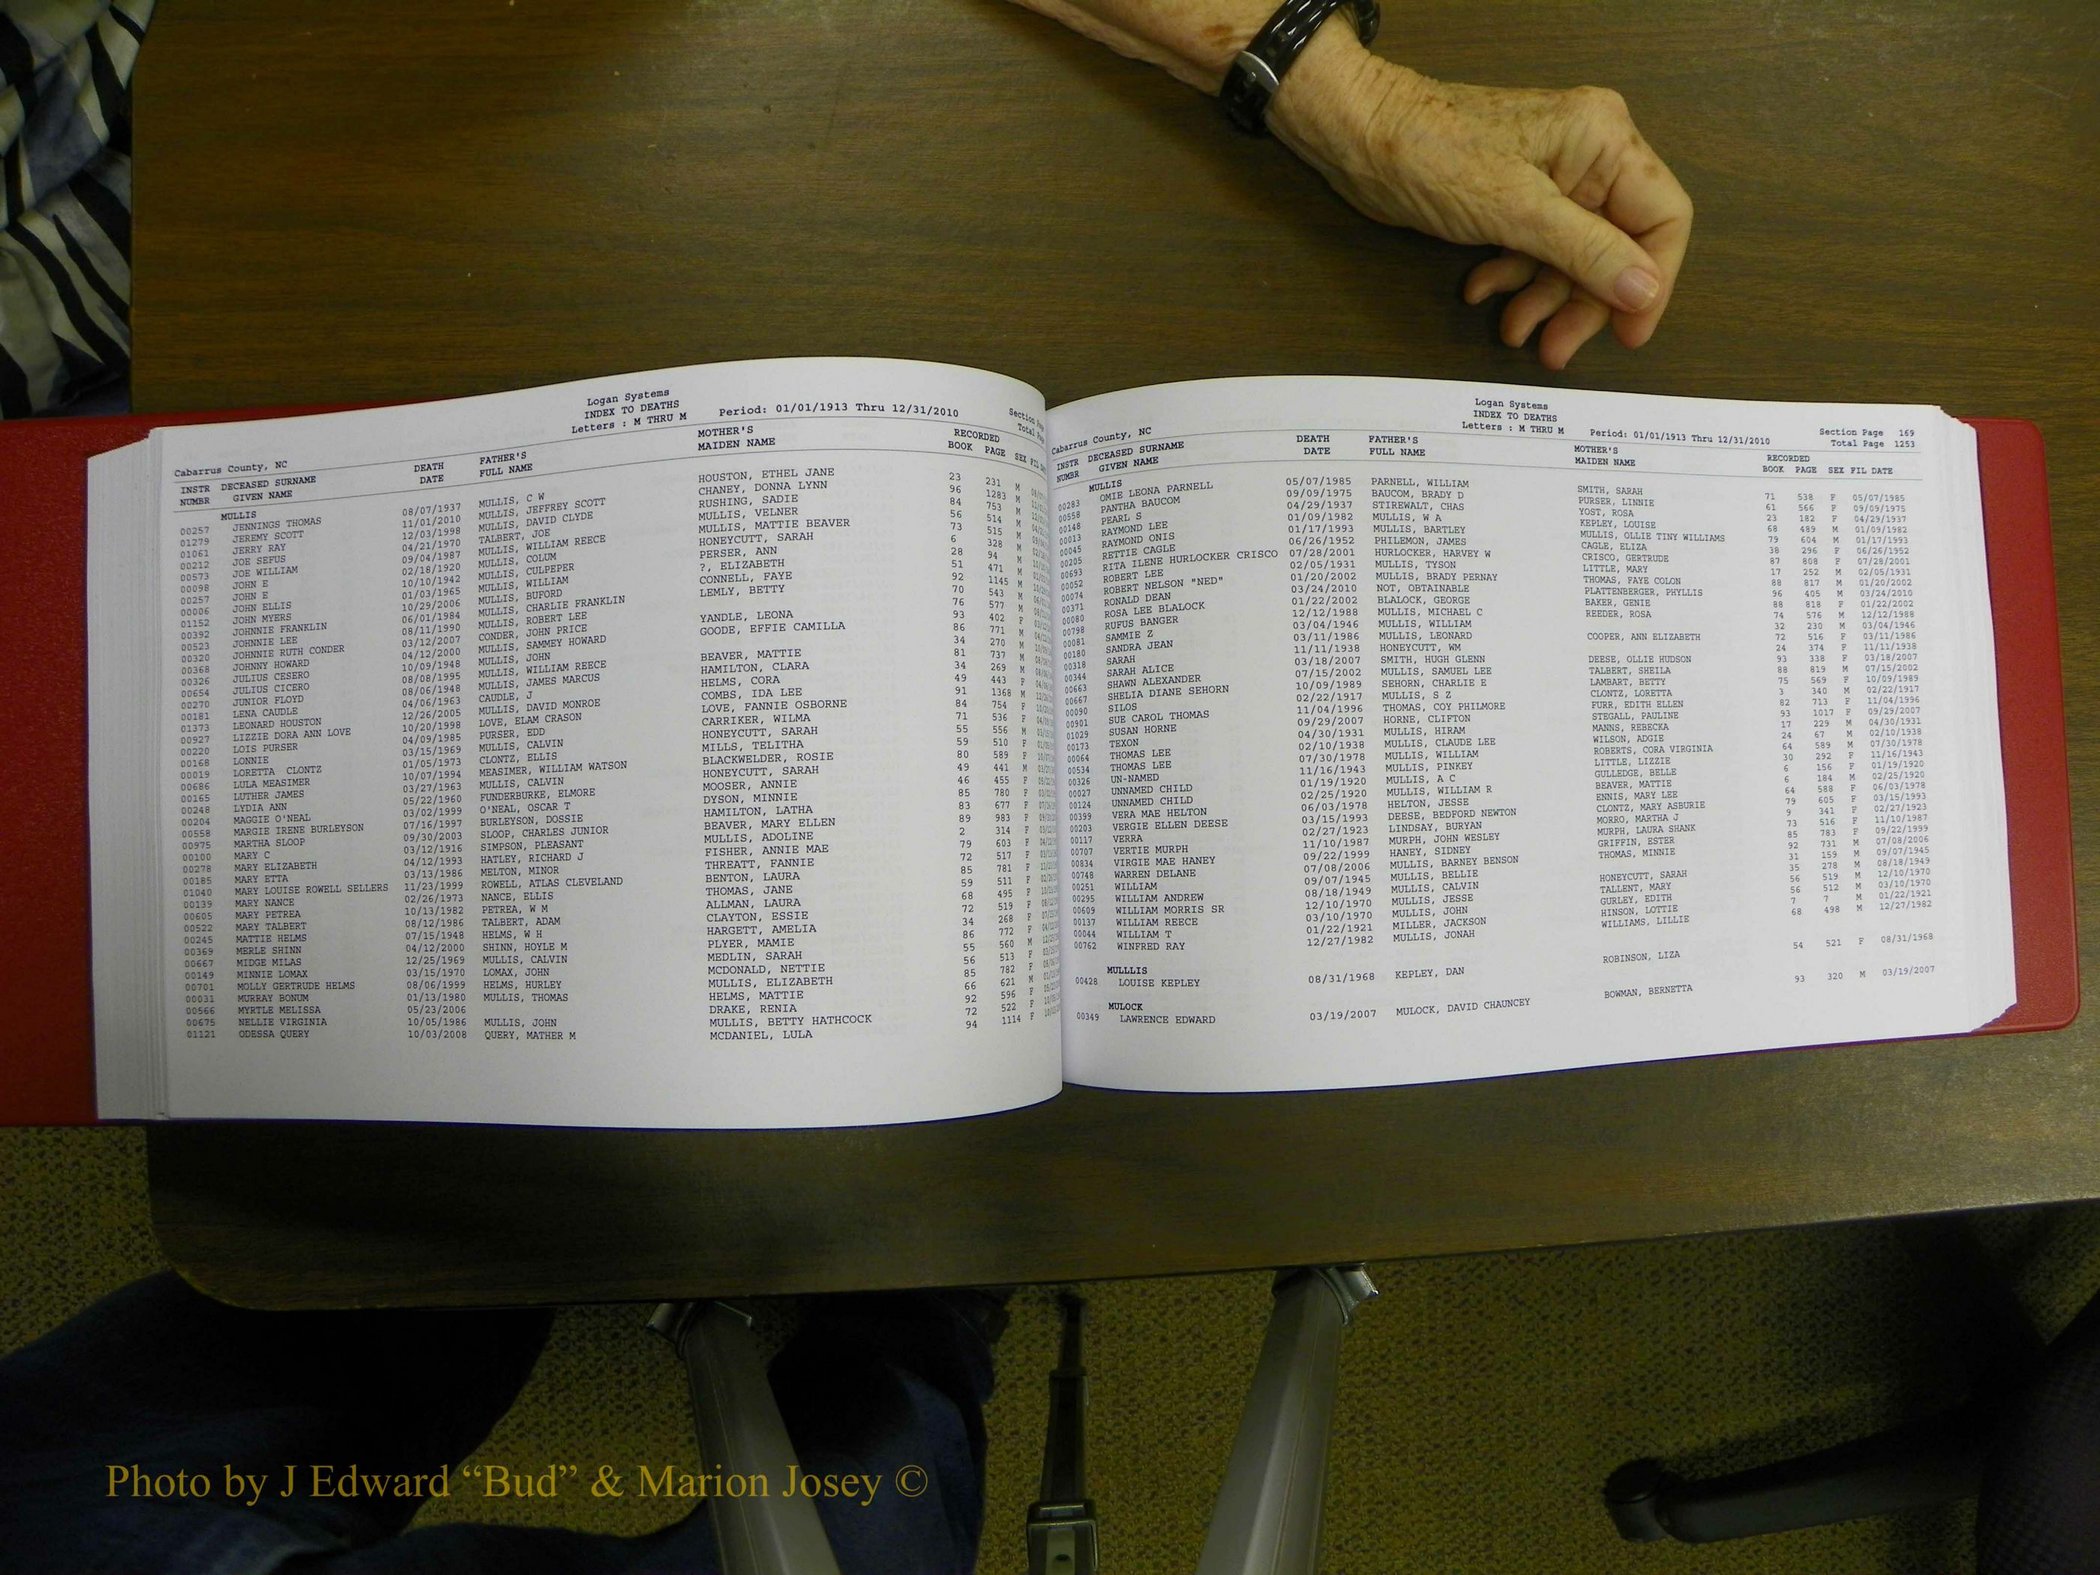 Logan Systems
INDEX TO DEATHS
Letters : M THRU M Period: 01/01/1913 Thru 12/31/2010
Cabarrus County, NC
INSTR DECEASED SURNAME DEATH FATHER'S MOTHER'S RECORDED
NUMBR GIVEN NAME DATE FULL NAME MAIDEN NAME BOOK PAGE SEX
MULLIS
00257 JENNINGS THOMAS 08/07/1937 MULLIS, C W HOUSTON, ETHEL JANE 23 231 M
01279 JEREMY SCOTT 11/01/2010 MULLIS, JEFFREY SCOTT CHANEY, DONNA LYNN 96 1283 M
01061 JERRY RAY 12/03/1998 MULLIS, DAVID CLYDE RUSHING, SADIE 84 753 M
00212 JOE SEFUS 04/21/1970 TALBERT, JOE MULLIS, VELNER 56 514 M
00573 JOE WILLIAM 09/04/1987 MULLIS, WILLIAM REECE MULLIS, MATTIE BEAVER 73 515 M
00098 JOHN E 02/18/1920 MULLIS, COLUM HONEYCUTT, SARAH 6 328 M
00257 JOHN E 10/10/1942 MULLIS, CULPEPER PERSER, ANN 28 94 M
00006 JOHN ELLIS 01/03/1965 MULLIS, WILLIAM ?, ELIZABETH 51 471 M
01152 JOHN MYERS 10/29/2006 MULLIS, BUFORD CONNELL, FAYE 92 1145 M
00392 JOHNNIE FRANKLIN 06/01/1984 MULLIS, CHARLIE FRANKLIN LEMLY, BETTY 70 543 M
00523 JOHNNIE LEE 08/11/1990 MULLIS, ROBERT LEE 76 577 M
00320 JOHNNIE RUTH CONDER 03/12/2007 CONDER, JOHN PRICE YANDLE, LEONA 93 402 F
00368 JOHNNY HOWARD 04/12/2000 MULLIS, SAMMEY HOWARD GOODE, EFFIE CAMILLA 86 771 M
00326 JULIUS CESERO 10/09/1948 MULLIS, JOHN 34 270 M
00654 JULIUS CICERO 08/08/1995 MULLIS, WILLIAM REECE BEAVER, MATTIE 81 737 M
00270 JUNIOR FLOYD 08/06/1948 MULLIS, JAMES MARCUS HAMILTON, CLARA 34 269 M
00181 LENA CAUDLE 04/06/1963 CAUDLE, J HELMS, CORA 49 443 F
01373 LEONARD HOUSTON 12/26/2005 MULLIS, DAVID MONROE COMBS, IDA LEE 91 1368 M
00927 LIZZIE DORA ANN LOVE 10/20/1998 LOVE, ELAM CRASON LOVE, FANNIE OSBORNE 84 754 F
00220 LOIS PURSER 04/09/1985 PURSER, EDD CARRIKER, WILMA 71 536 F
00168 LONNIE 03/15/1969 MULLIS, CALVIN HONEYCUTT, SARAH 55 556 M
00019 LORETTA CLONTZ 01/05/1973 CLONTZ, ELLIS MILLS, TELITHA 59 510 F
00686 LULA MEASIMER 10/07/1994 MEASIMER, WILLIAM WATSON BLACKWELDER, ROSIE 80 589 F
00165 LUTHER JAMES 03/27/1963 MULLIS, CALVIN HONEYCUTT, SARAH 49 441 M
00248 LYDIA ANN 05/22/1960 FUNDERBURKE, ELMORE MOOSER, ANNIE 46 455 F
00204 MAGGIE O'NEAL 03/02/1999 O'NEAL, OSCAR T DYSON, MINNIE 85 780 F
00558 MARGIE IRENE BURLEYSON 07/16/1997 BURLEYSON, DOSSIE HAMILTON, LATHA 83 677 F
00975 MARTHA SLOOP 09/30/2003 SLOOP, CHARLES JUNIOR BEAVER, MARY ELLEN 89 983 F
00100 MARY C 03/12/1916 SIMPSON, PLEASANT MULLIS, ADOLINE 2 314 F
00278 MARY ELIZABETH 04/12/1993 HATLEY, RICHARD J FISHER, ANNIE MAE 79 603 F
00185 MARY ETTA 03/13/1986 MELTON, MINOR THREATT, FANNIE 72 517 F
01040 MARY LOUISE ROWELL SELLERS 11/23/1999 ROWELL, ATLAS CLEVELAND BENTON, LAURA 85 781 F
00139 MARY NANCE 02/26/1973 NANCE, ELLIS THOMAS, JANE 59 511 F
00605 MARY PETREA 10/13/1982 PETREA, W M ALLMAN, LAURA 68 495 F
00522 MARY TALBERT 08/12/1986 TALBERT, ADAM CLAYTON, ESSIE 72 519 F
00245 MATTIE HELMS 07/15/1948 HELMS, W H HARGETT, AMELIA 34 268 F
00369 MERLE SHINN 04/12/2000 SHINN, HOYLE M PLYER, MAMIE 86 772 F
00667 MIDGE MILAS 12/25/1969 MULLIS, CALVIN MEDLIN, SARAH 55 560 M
00149 MINNIE LOMAX 03/15/1970 LOMAX, JOHN MCDONALD, NETTIE 56 513 F
00701 MOLLY GERTRUDE HELMS 08/06/1999 HELMS, HURLEY MULLIS, ELIZABETH 85 782 F
00031 MURRAY BONUM 01/13/1980 MULLIS, THOMAS HELMS, MATTIE 66 621 M
00566 MYRTLE MELISSA 05/23/2006 DRAKE, RENIA 92 596 F
00675 NELLIE VIRGINIA 10/05/1986 MULLIS, JOHN MULLIS, BETTY HATHCOCK 72 522 F
01121 ODESSA QUERY 10/03/2008 QUERY, MATHER M MCDANIEL, LULA 94 1114 F
Logan Systems
INDEX TO DEATHS
Letters : M THRU M Period: 01/01/1913 Thru 12/31/2010
Section Page 169
Total Page 1253
Cabarrus County, NC
INSTR DECEASED SURNAME DEATH FATHER'S MOTHER'S RECORDED
NUMBR GIVEN NAME DATE FULL NAME MAIDEN NAME BOOK PAGE SEX FIL DATE
MULLIS
00283 OMIE LEONA PARNELL 05/07/1985 PARNELL, WILLIAM SMITH, SARAH 71 538 F 05/07/1985
00558 PANTHA BAUCOM 09/09/1975 BAUCOM, BRADY D PURSER, LINNIE 61 566 F 09/09/1975
00148 PEARL S 04/29/1937 STIREWALT, CHAS YOST, ROSA 23 182 F 04/29/1937
00013 RAYMOND LEE 01/09/1982 MULLIS, W A KEPLEY, LOUISE 68 489 M 01/09/1982
00045 RAYMOND ONIS 01/17/1993 MULLIS, BARTLEY MULLIS, OLLIE TINY WILLIAMS 79 604 M 01/17/1993
00205 RETTIE CAGLE 06/26/1952 PHILEMON, JAMES CAGLE, ELIZA 38 296 F 06/26/1952
00693 RITA ILENE HURLOCKER CRISCO 07/28/2001 HURLOCKER, HARVEY W CRISCO, GERTRUDE 87 808 F 07/28/2001
00052 ROBERT LEE 02/05/1931 MULLIS, TYSON LITTLE, MARY 17 252 M 02/05/1931
00074 ROBERT NELSON "NED" 01/20/2002 MULLIS, BRADY PERNAY THOMAS, FAYE COLON 88 817 M 01/20/2002
00371 RONALD DEAN 03/24/2010 NOT, OBTAINABLE PLATTENBERGER, PHYLLIS 96 405 M 03/24/2010
00080 ROSA LEE BLALOCK 01/22/2002 BLALOCK, GEORGE BAKER, GENIE 88 818 F 01/22/2002
00798 RUFUS BANGER 12/12/1988 MULLIS, MICHAEL C REEDER, ROSA 74 576 M 12/12/1988
00081 SAMMIE Z 03/04/1946 MULLIS, WILLIAM 32 230 M 03/04/1946
00180 SANDRA JEAN 03/11/1986 MULLIS, LEONARD COOPER, ANN ELIZABETH 72 516 F 03/11/1986
00318 SARAH 11/11/1938 HONEYCUTT, WM 24 374 F 11/11/1938
00344 SARAH ALICE 03/18/2007 SMITH, HUGH GLENN DEESE, OLLIE HUDSON 93 338 F 03/18/2007
00663 SHAWN ALEXANDER 07/15/2002 MULLIS, SAMUEL LEE TALBERT, SHEILA 88 819 M 07/15/2002
00667 SHELIA DIANE SEHORN 10/09/1989 SEHORN, CHARLIE E LAMBART, BETTY 75 569 F 10/09/1989
00090 SILOS 02/22/1917 MULLIS, S Z CLONTZ, LORETTA 3 340 M 02/22/1917
SUE CAROL THOMAS 11/04/1996 THOMAS, COY PHILMORE FURR, EDITH ELLEN 82 713 F 11/04/1996
01029 SUSAN HORNE 09/29/2007 HORNE, CLIFTON STEGALL, PAULINE 93 1017 F 09/29/2007
00173 TEXON 04/30/1931 MULLIS, HIRAM MANNS, REBECKA 17 229 M 04/30/1931
00064 THOMAS LEE 02/10/1938 MULLIS, CLAUDE LEE WILSON, ADGIE 24 67 M 02/10/1938
00534 THOMAS LEE 07/30/1978 MULLIS, WILLIAM ROBERTS, CORA VIRGINIA 64 589 M 07/30/1978
00326 UN-NAMED 11/16/1943 MULLIS, PINKEY LITTLE, LIZZIE 30 292 F 11/16/1943
00027 UNNAMED CHILD 01/19/1920 MULLIS, A C GULLEDGE, BELLE 6 156 F 01/19/1920
00124 UNNAMED CHILD 02/25/1920 MULLIS, WILLIAM R BEAVER, MATTIE 6 184 M 02/25/1920
00399 VERA MAE HELTON 06/03/1978 HELTON, JESSE ENNIS, MARY LEE 64 588 F 06/03/1978
00203 VERGIE ELLEN DEESE 03/15/1993 DEESE, BEDFORD NEWTON CLONTZ, MARY ASBURIE 79 605 F 03/15/1993
00117 VERRA 02/27/1923 LINDSAY, BURYAN MORRO, MARTHA J 9 341 F 02/27/1923
00707 VERTIE MURPH 11/10/1987 MURPH, JOHN WESLEY MURPH, LAURA SHANK 73 516 F 11/10/1987
00834 VIRGIE MAE HANEY 09/22/1999 HANEY, SIDNEY GRIFFIN, ESTER 85 783 F 09/22/1999
00748 WARREN DELANE 07/08/2006 MULLIS, BARNEY BENSON THOMAS, MINNIE 92 731 M 07/08/2006
00251 WILLIAM 09/07/1945 MULLIS, BELLIE 31 159 M 09/07/1945
00295 WILLIAM ANDREW 08/18/1949 MULLIS, CALVIN HONEYCUTT, SARAH 35 278 M 08/18/1949
00609 WILLIAM MORRIS SR 12/10/1970 MULLIS, JESSE TALLENT, MARY 56 519 M 12/10/1970
00137 WILLIAM REECE 03/10/1970 MULLIS, JOHN GURLEY, EDITH 56 512 M 03/10/1970
00044 WILLIAM T 01/22/1921 MILLER, JACKSON HINSON, LOTTIE 7 7 M 01/22/1921
00762 WINFRED RAY 12/27/1982 MULLIS, JONAH WILLIAMS, LILLIE 68 498 M 12/27/1982
MULLLIS
00428 LOUISE KEPLEY 08/31/1968 KEPLEY, DAN ROBINSON, LIZA 54 521 F 08/31/1968
MULOCK
00349 LAWRENCE EDWARD 03/19/2007 MULOCK, DAVID CHAUNCEY BOWMAN, BERNETTA 93 320 M 03/19/2007
Photo by J Edward “Bud” & Marion Josey ©